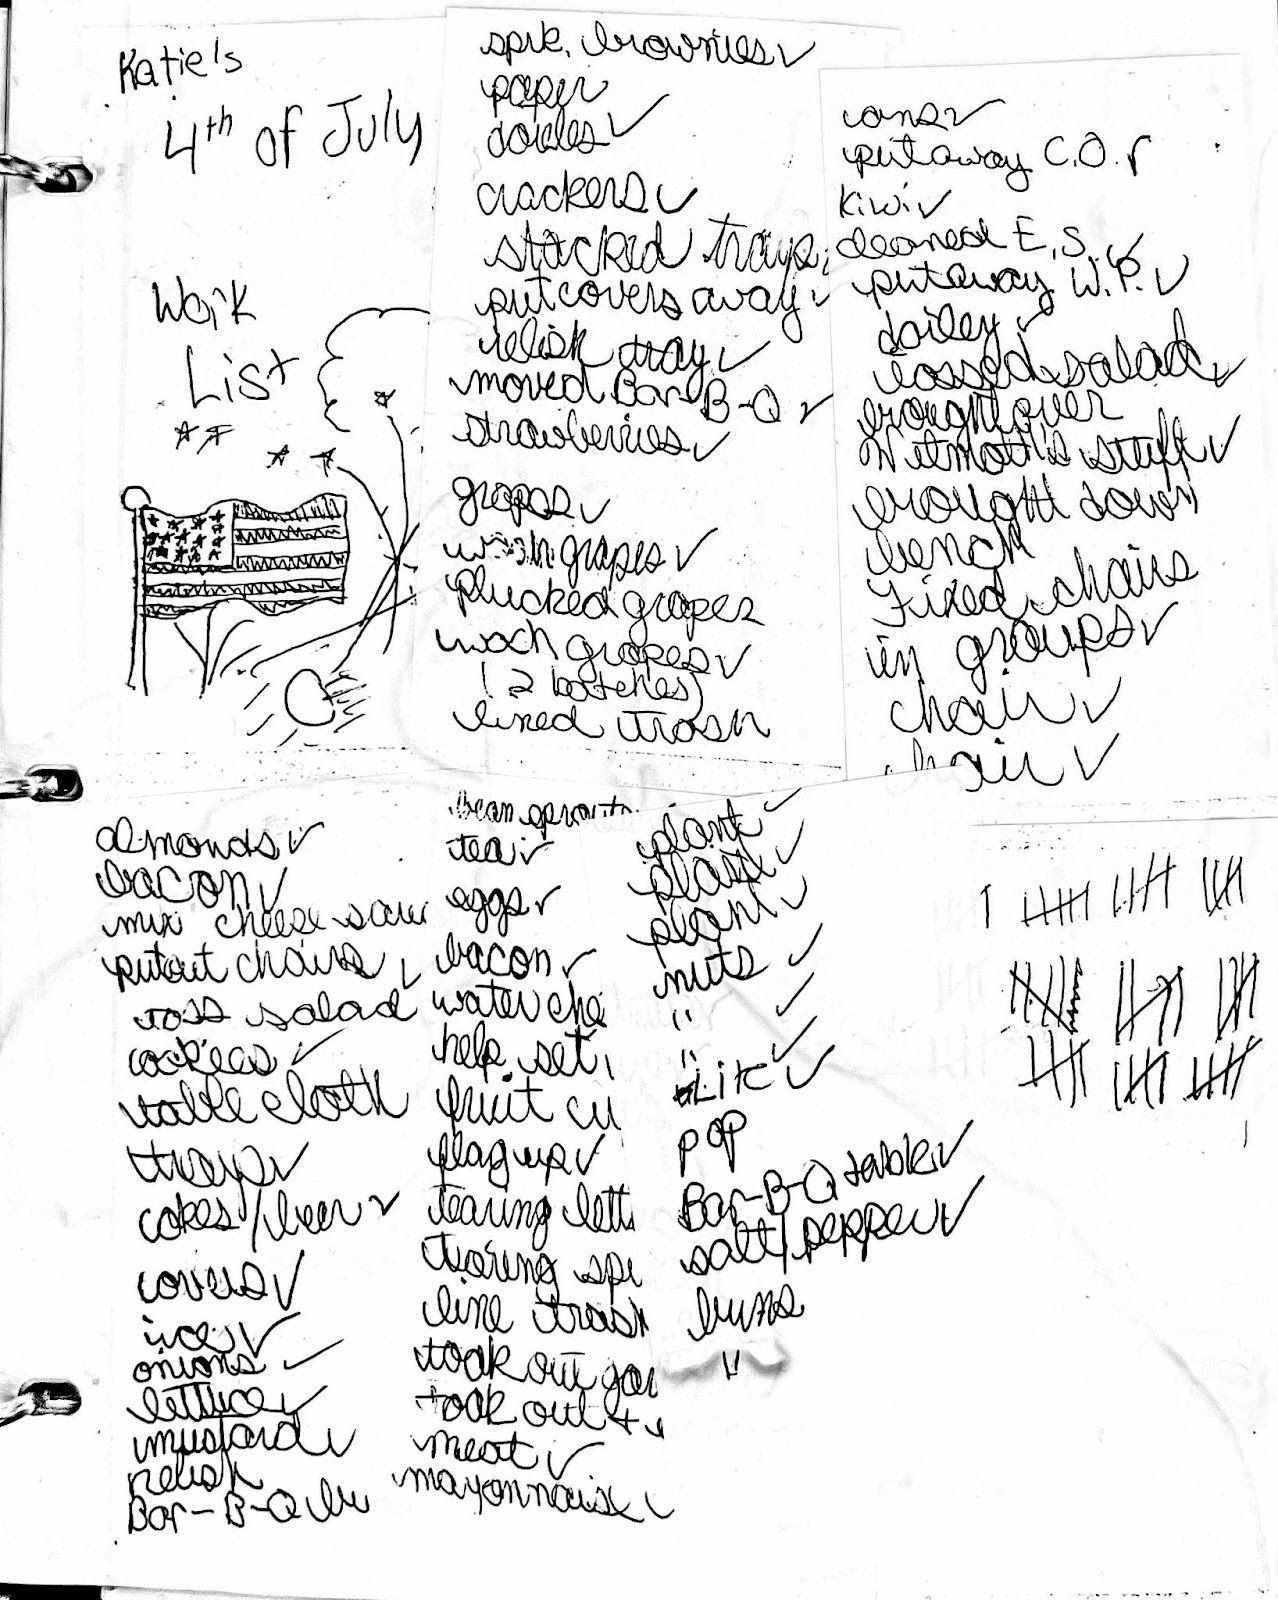 Katie's
4th of July
Work
List
spk. brownies ✓
paper
doilies ✓
crackers ✓
stacked trays
put covers away ✓
relish tray ✓
moved Bar-B-Q ✓
strawberries ✓
grapes ✓
wash grapes ✓
plucked grapes
wash grapes ✓
(2 batches)
lined trash
cans ✓
putaway C.O. ✓
kiwi ✓
cleaned E.S. ✓
putaway W.P. ✓
doiley ✓
tossed salad ✓
brought over
Wetmoth's stuff ✓
brought down
bench
Fixed chairs
in groups ✓
chair ✓
chair ✓
almonds ✓
bacon ✓
mix cheese sau
putout chairs ✓
toss salad
cookies ✓
table cloth
trays ✓
cokes/beer ✓
covers ✓
ice ✓
onions ✓
lettuce ✓
mustard ✓
relish
Bar-B-Q bu
bean sprouts
tea ✓
eggs ✓
bacon ✓
water che
help set
fruit cu
flag up ✓
tearing lett
tearing spi
line trash
took out gar
took out t
meat ✓
mayonnaise ✓
plant ✓
plant ✓
plant ✓
nuts ✓
" ✓
" ✓
Lite ✓
pop
Bar-B-Q table ✓
salt/pepper ✓
buns
"